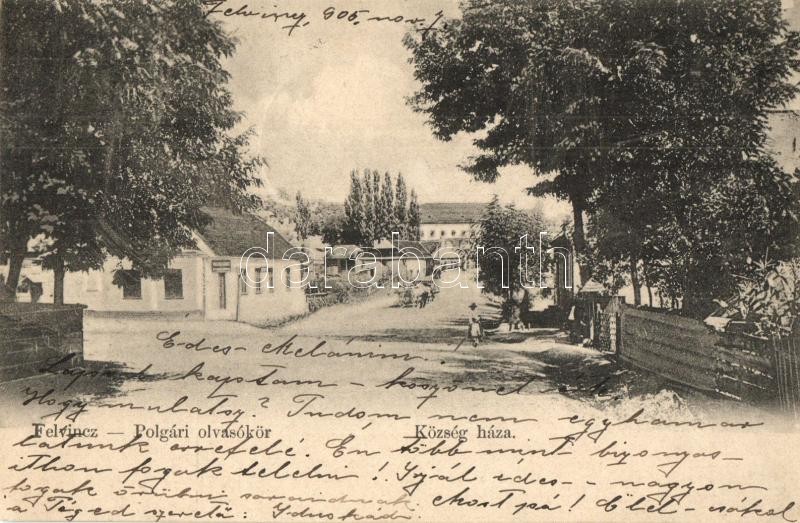 Felvincz, 905. nov. 7
darabanth
Edes Melánim.
Lapod kaptam - köszönet ék
Hogy mulatsz? Tudom nem egyhamar
Felvincz — Polgári olvasókör Község háza.
látunk errefelé. Én több mint bizonyos
itthon fogok telelni! Irjál édes - nagyon
fogok örülni soraidnak okost pá! Ölel - csókol
a Téged szerető: